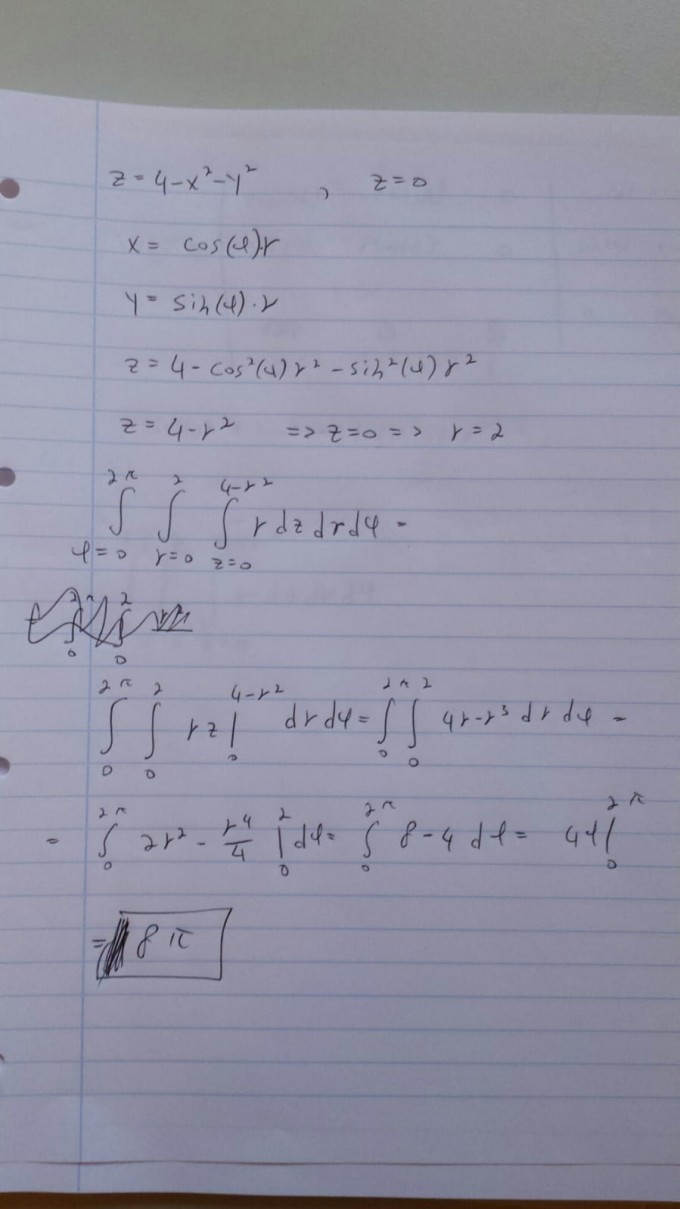 z = 4-x²-y² , z=0
x = cos(φ)·r
y = sin(φ)·r
z = 4 - cos²(φ) r² - sin²(φ) r²
z = 4-r² => z=0 => r=2
∫_{φ=0}^{2π} ∫_{r=0}^{2} ∫_{z=0}^{4-r²} r dz dr dφ =
∫_0^{2π} ∫_0^2 rz |_0^{4-r²} dr dφ = ∫_0^{2π} ∫_0^2 4r-r³ dr dφ =
= ∫_0^{2π} 2r² - r⁴/4 |_0^2 dφ = ∫_0^{2π} 8-4 dφ = 4φ |_0^{2π}
= 8π